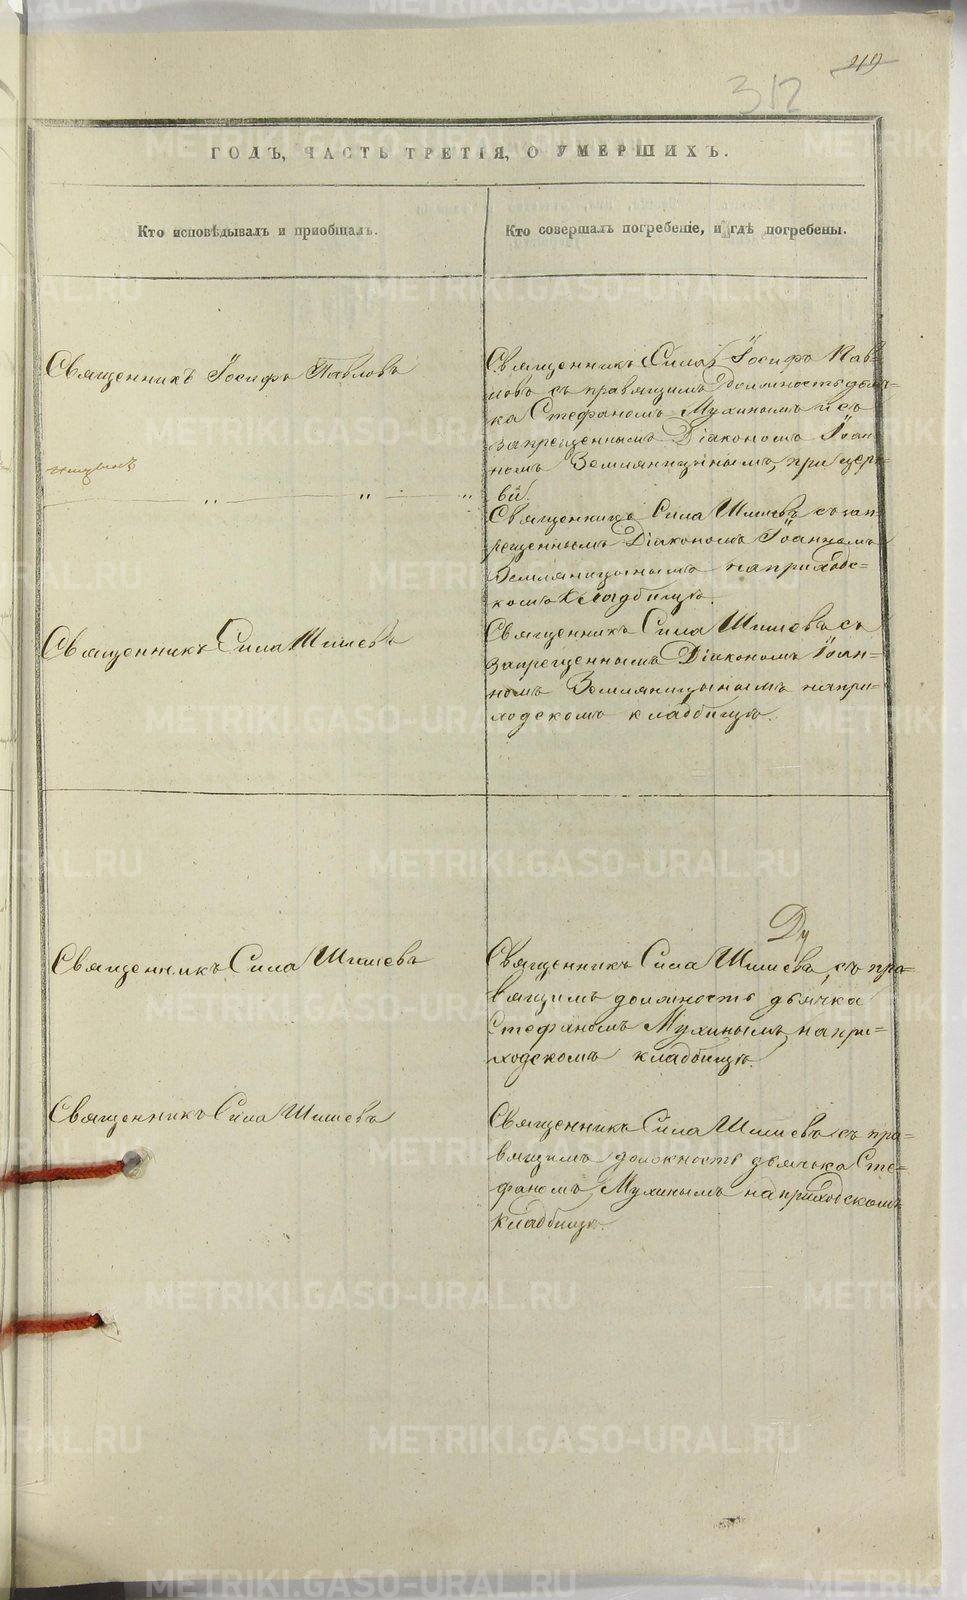 219
312
ГОДЪ, ЧАСТЬ ТРЕТІЯ, О УМЕРШИХЪ.
Кто исповѣдывалъ и приобщалъ.
Кто совершалъ погребеніе, и гдѣ погребены.
Священникъ Іосифъ Павловъ
Священникъ Сила Шишевъ
Священникъ Сила Шишевъ
Священникъ Сила Шишевъ
Священникъ Іосифъ Пав-
ловъ съ правящимъ должность дьяч-
ка Стефаномъ Мухинымъ и съ
запрещеннымъ Діакономъ Іоан-
номъ Земляницынымъ, при церк-
ви.
Священникъ Сила Шишевъ съ зап-
рещеннымъ Діакономъ Іоанномъ
Земляницынымъ на приходс-
комъ кладбищѣ.
Священникъ Сила Шишевъ съ
запрещеннымъ Діакономъ Іоан-
номъ Земляницынымъ на при-
ходскомъ кладбищѣ.
Ду
Священникъ Сила Шишевъ, съ пра-
вящимъ должность дьячка
Стефаномъ Мухинымъ, на при-
ходскомъ кладбищѣ.
Священникъ Сила Шишевъ съ пра-
вящимъ должность дьячька Сте-
фаномъ Мухинымъ на приходскомъ
кладбищѣ.
METRIKI.GASO-URAL.RU